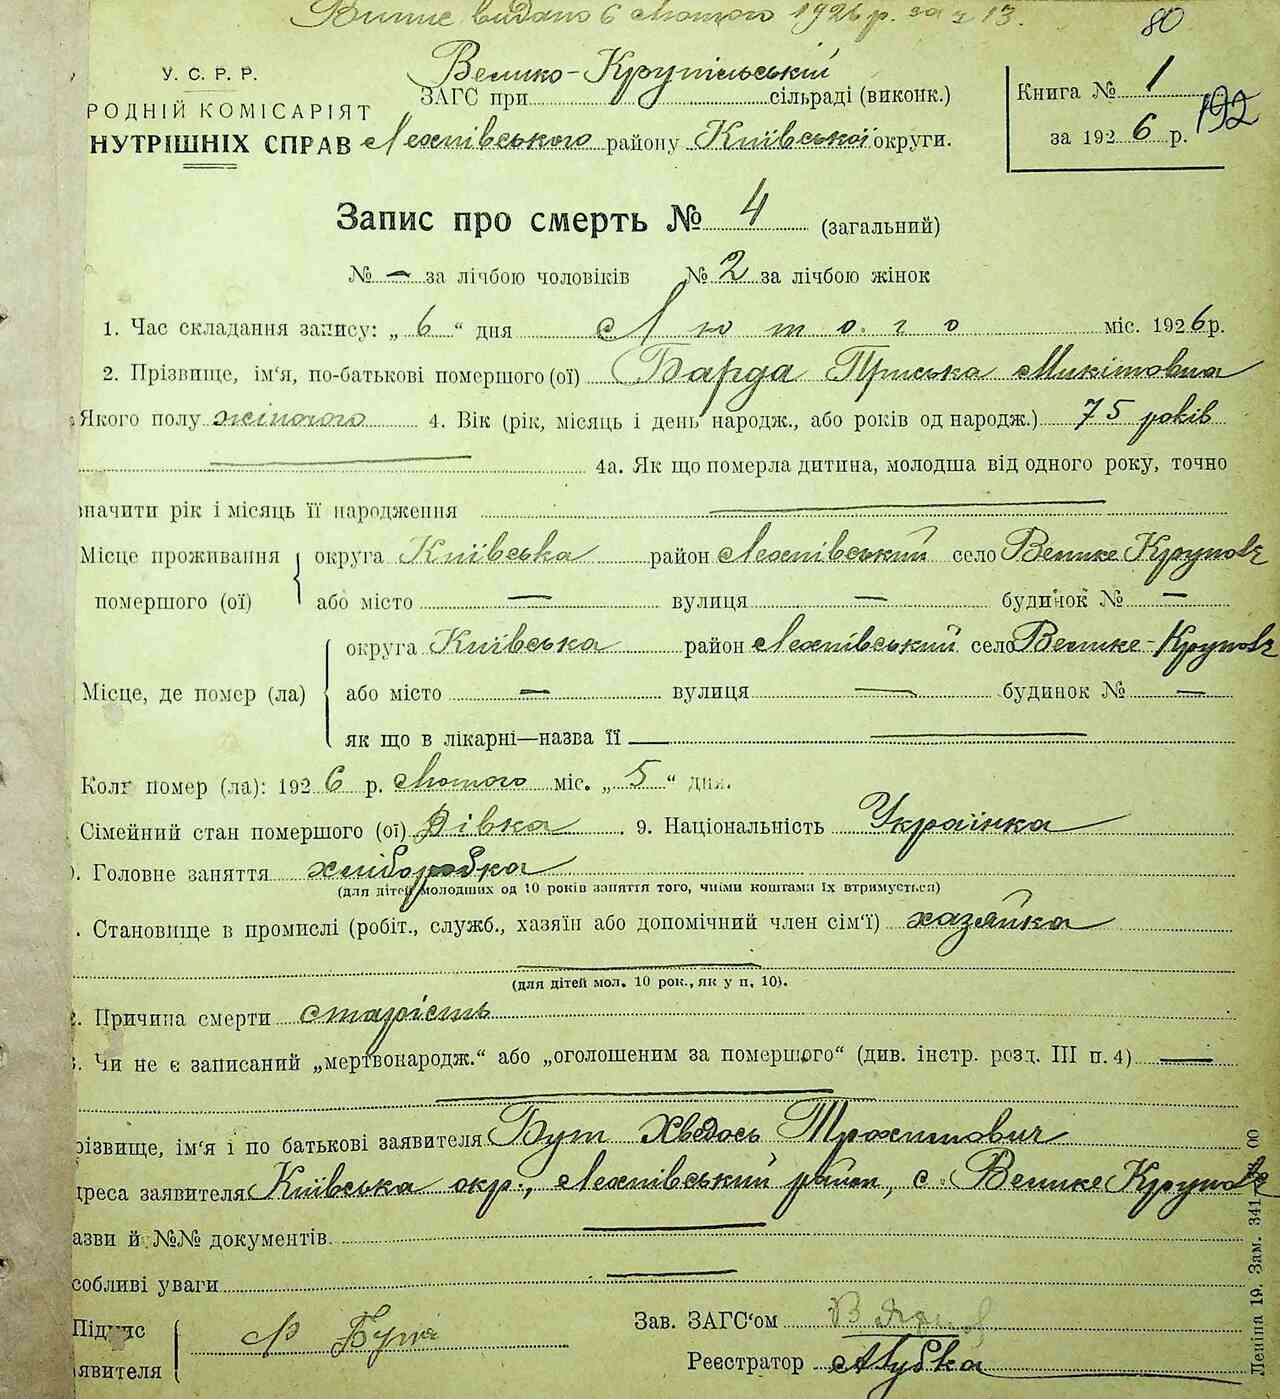 Витяг видано 6 лютого 1926 р. за ч 13.
80
У. С. Р. Р.
Велико-Крупільській
РОДНІЙ КОМІСАРІЯТ
ЗАГС при сільраді (виконк.)
Книга № 1
192
НУТРІШНІХ СПРАВ
району Київської округи.
за 1926 р.
Запис про смерть № 4 (загальний)
№ — за лічбою чоловіків № 2 за лічбою жінок
1. Час складання запису: „ 6 “ дня Лютого міс. 1926 р.
2. Прізвище, ім‘я, по-батькові помершого (ої) Барда Приська Микітовна
Якого полу жіночого 4. Вік (рік, місяць і день народж., або років од народж.) 75 років
4а. Як що померла дитина, молодша від одного року, точно
значити рік і місяць її народження
Місце проживання округа Київська район село Велике Круполь
помершого (ої) або місто — вулиця — будинок № —
округа Київська район село Велике-Круполь
Місце, де помер (ла) або місто — вулиця — будинок № —
як що в лікарні—назва її —
Колг помер (ла): 1926 р. Лютого міс. „ 5 “ дня.
. Сімейний стан помершого (ої) Дівка 9. Національність Українка
). Головне заняття хліборобка
(для дітей молодших од 10 років заняття того, чиїми коштами їх втримується)
. Становище в промислі (робіт., служб., хазяїн або допомічний член сім‘ї) хазяйка
(для дітей мол. 10 рок., як у п. 10).
. Причина смерти старість
. Чи не є записаний „мертвонародж.“ або „оголошеним за помершого“ (див. інстр. розд. III п. 4) —
різвище, ім‘я і по батькові заявителя Бут Хведось Трохимович
дреса заявителя Київська окр., район, с. Велике Круполь
азви й №№ документів.
собливі уваги
Підпис Ф Бут
Зав. ЗАГС‘ом
явителя
Реєстратор
Леніна 19. Зам. 341
00